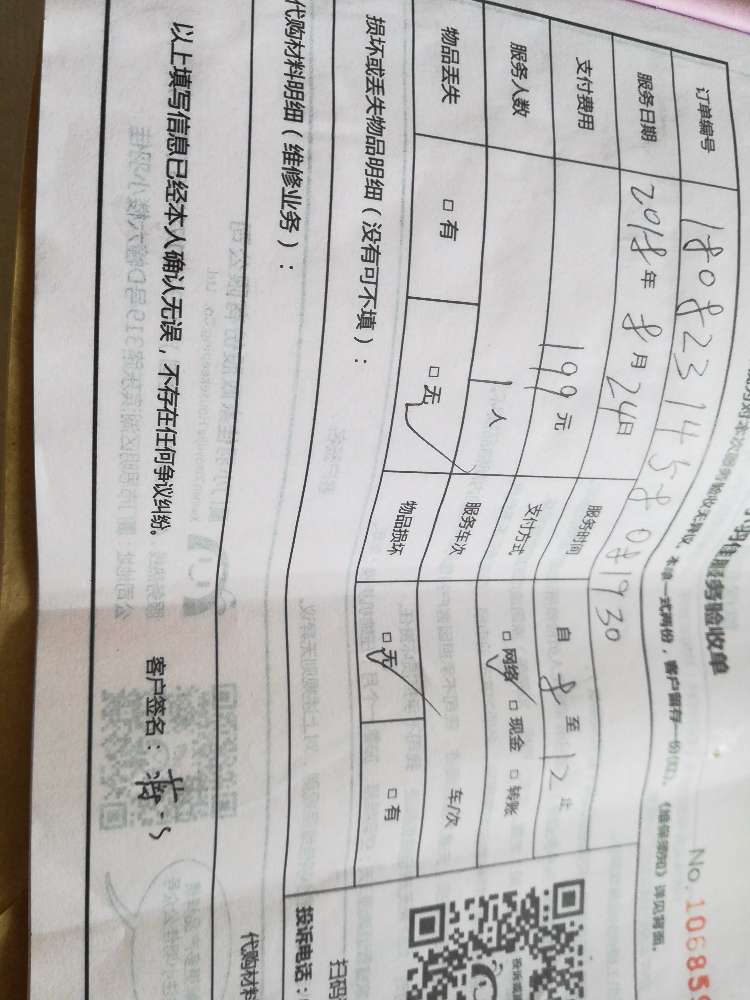 服务验收单
No.10685
本单一式两份，客户留存一份(红)，《维保须知》详见背面。
订单编号 1808231458081930
服务日期 2018年8月24日 服务时间 自8至12止
支付费用 199元 支付方式 □网络 □现金 □转账
服务人数 1人 服务车次 车/次
物品丢失 □有 □无 物品损坏 □无 □有
损坏或丢失物品明细（没有可不填）：
代购材料明细（维修业务）： 代购材料
以上填写信息已经本人确认无误，不存在任何争议纠纷。 客户签名：
扫码
投诉电话：